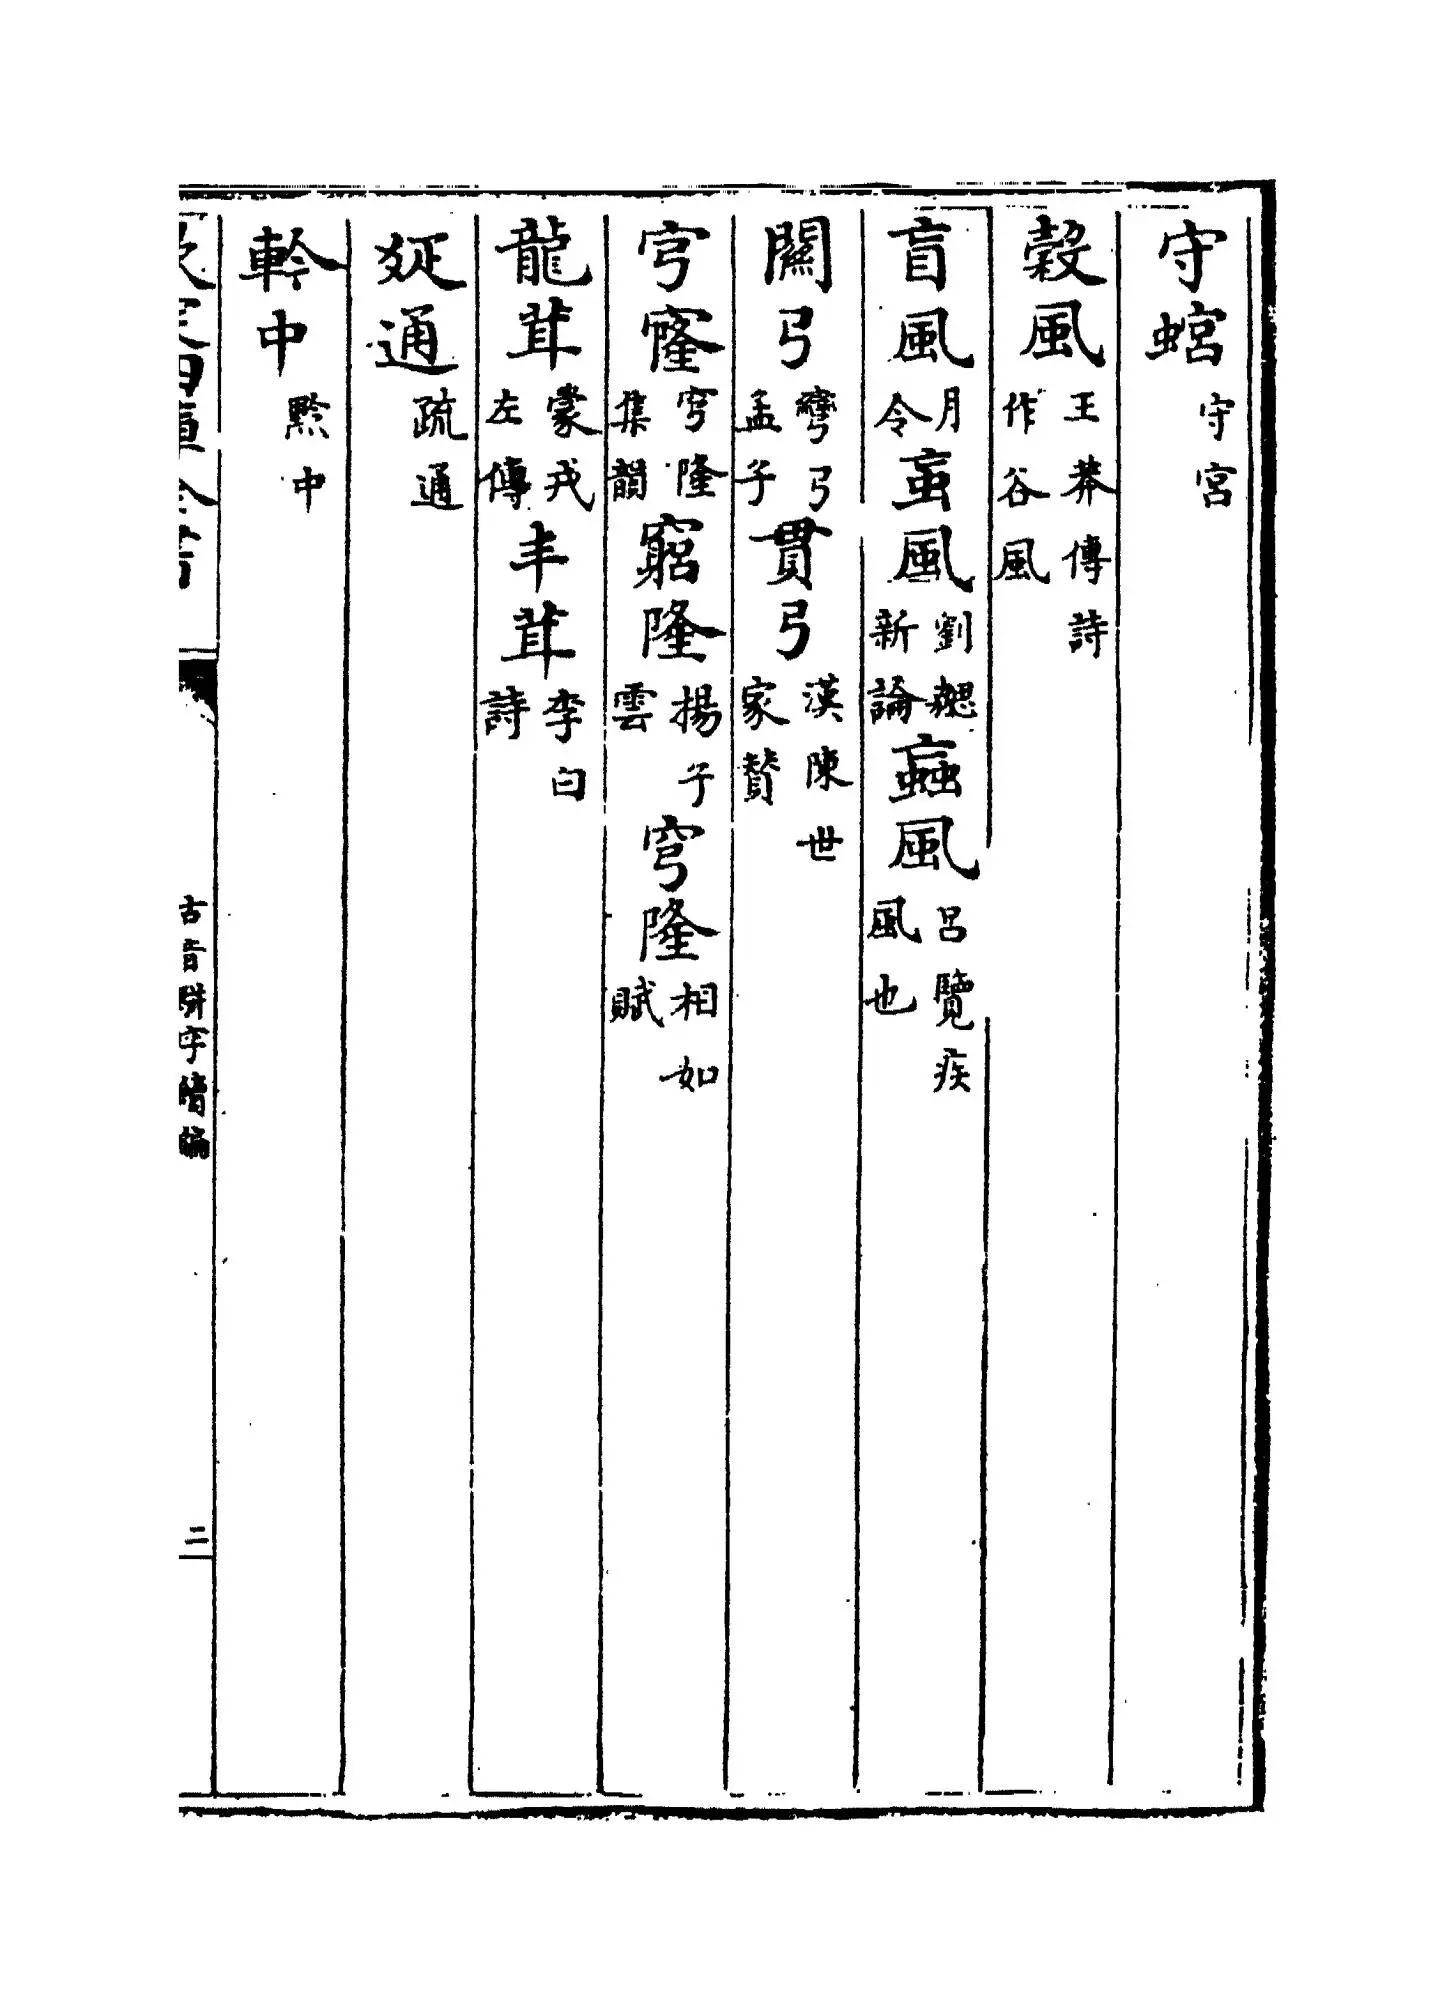 守䗁守宮
穀風王莽傳詩作谷風
盲風月令䖟風劉勰新論蝱風呂覽疾風也
關弓彎弓孟子貫弓漢陳世家贊
穹窿穹隆集韻窮隆揚子雲穹隆相如賦
龍茸蒙戎左傳丰茸李白詩
通疏通
軡中黔中
古音駢字續編
二